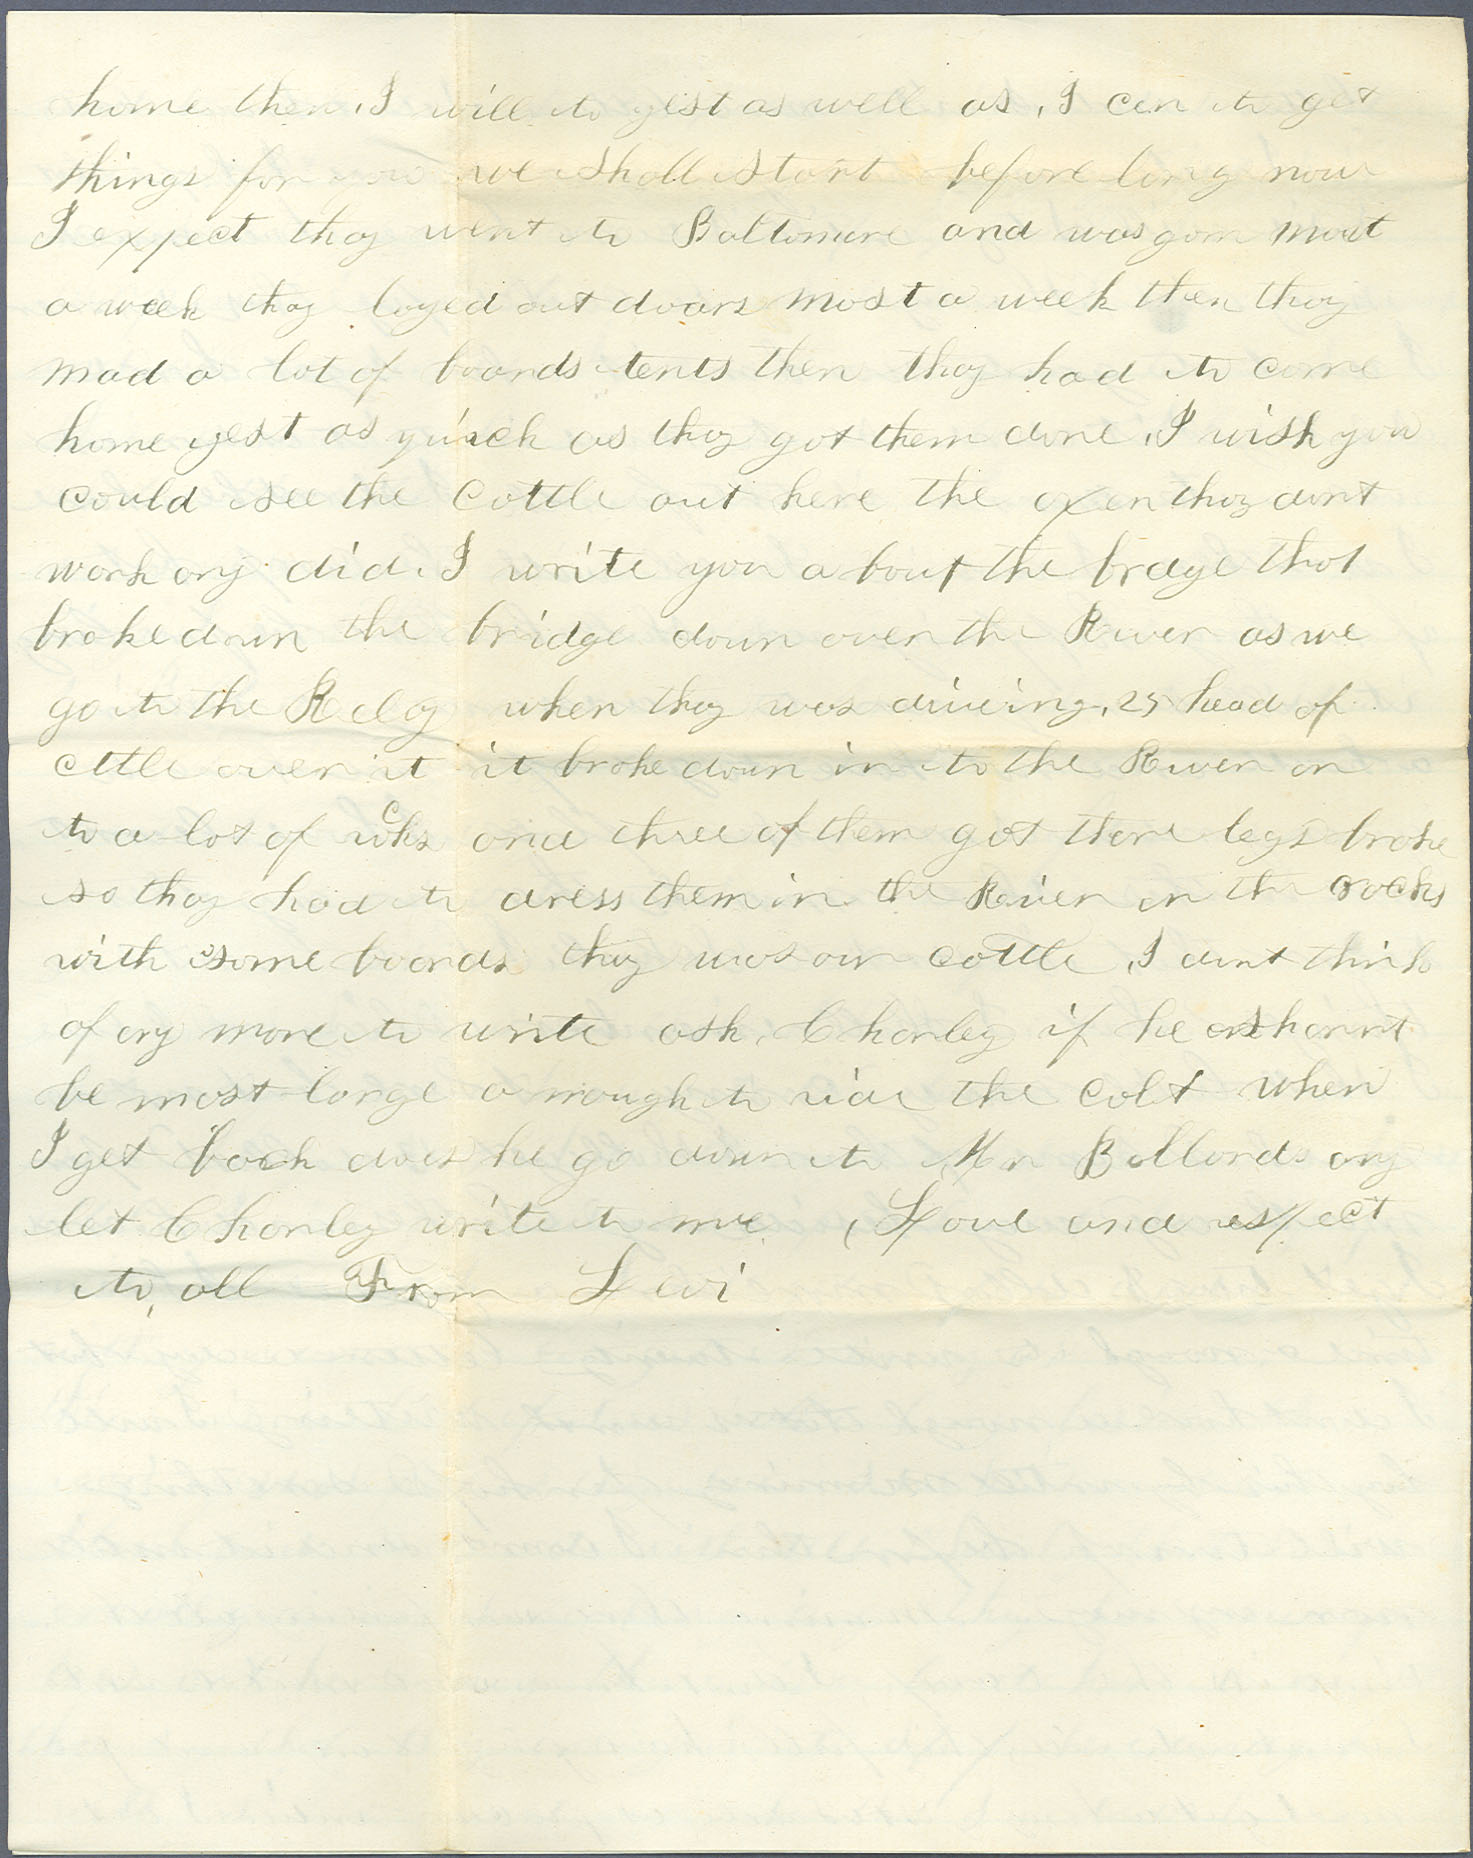 home then I will to yest as well as I can to get
things for you we shall start before long now
I expect thay went to Baltomore and was gorn most
a week thay layed out doars most a week then thay
mad a lot of boards tents then thay had to come
home yest as quick as thay got them done I wish you
could see the Cattle out here the oxen thay dont
work any did I write you a bout the bradge that
broke down the bridge down over the River as we
go to the Relay when thay was driveing 25 head of
cttle over it it broke down in to the River on
to a lot of and three of them got there legs broke
so thay had to dress them in the River on the rocks
with some boards thay was our cattle I dont think
of any more to write ask Charley if he sharnt
be most large a nough to ride the colt when
I get back does he go down to Mr Ballards any
let Charley write to me Love and respect
to all From Levi